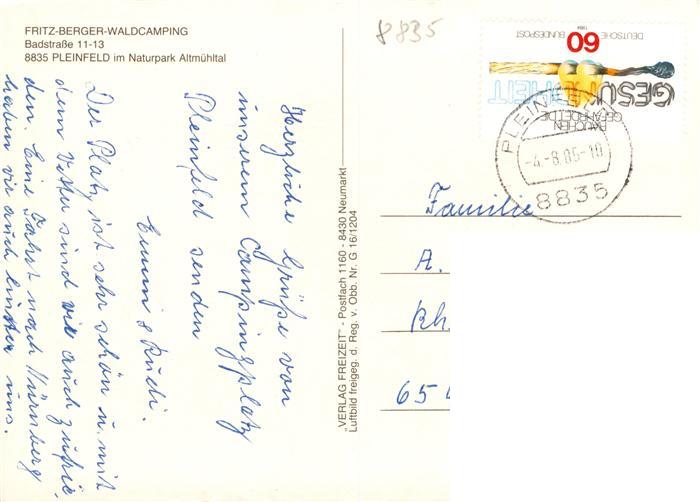 FRITZ-BERGER-WALDCAMPING
Badstraße 11-13
8835 PLEINFELD im Naturpark Altmühltal
Herzliche Grüße von
unserem Campingplatz
Pleinfeld senden
Emmi & Rudi.
Der Platz ist sehr schön u. mit
dem Wetter sind wir auch zufrie-
den. Eine Fahrt nach Nürnberg
haben wir auch hinter uns.
„VERLAG FREIZEIT" - Postfach 1160 - 8430 Neumarkt
Luftbild freigeg. d. Reg. v. Obb. Nr. G 16/1204
8835
DEUTSCHE BUNDESPOST
1984
60
GESUNDHEIT
RAUCHEN
GEFÄHRDET DIE
PLEINFELD
-4.-8.85-10
8835
Familie
A.
Rh.
654